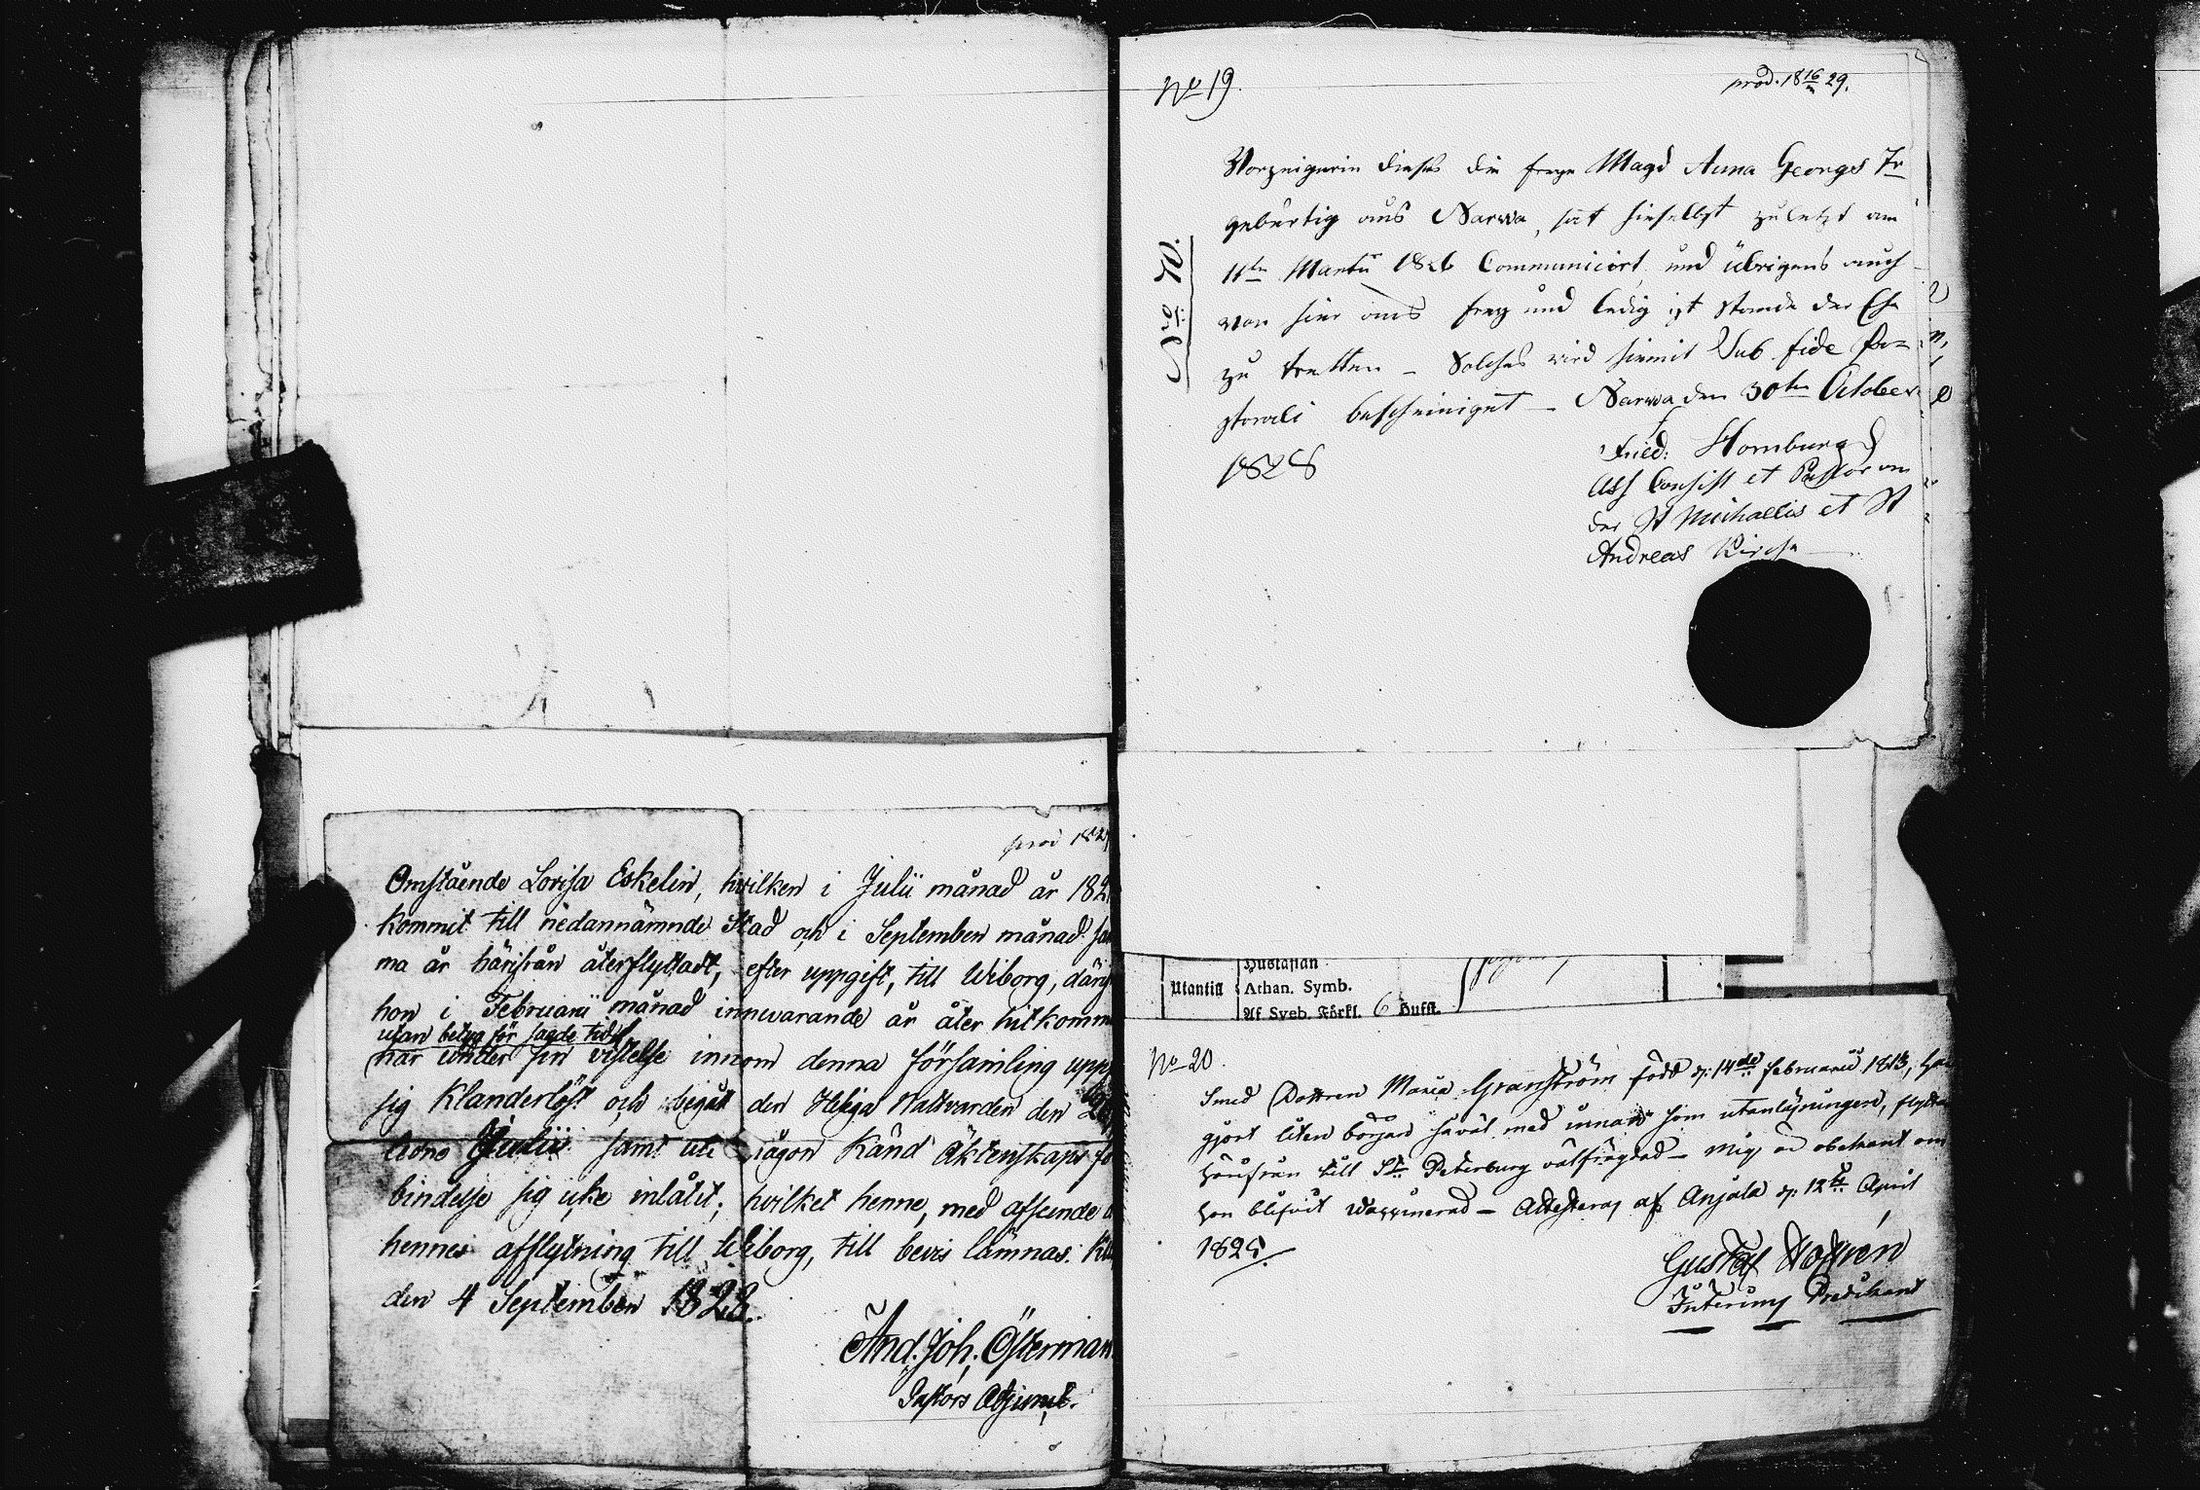 prod 182
Omstående Lovisa Eskelin, hvilken i Julii månad år 182
kommit till nedannämnde Stad och i September månad sam
ma år härifrån återflyttadt, efter uppgift, till Wiborg, därif
hon i Februarii månad innevarande år åter hitkomm
utan betyg för sagde tid
har under sin vistelse innom denna församling upp
sig Klanderlöst och begått den Heliga Nattvarden den
Julii samt uti någon Känd Äktenskaps fö
bindelse sig icke inlåtit; hvilket henne, med afseende
hennes afflytning till Wiborg, till bevis lämnas.
den 4 September 1828.
And. Joh. Österman
Pastors Adjunct.
No 19.
prod. 18 16 29.
No 70.
Vorzeigerin dieses die freye Magd Anna Georgs Tr
gebürtig aus Narva, hat hieselbst zuletzt am
11ten Martii 1826 Communicirt und übrigens auch
von hier aus frey und ledig ist Stande der Ehe
zu tretten – Solches wird hiemit Sub fide Pa=
storali bescheiniget – Narva den 30ten October
1828
Fried: Homburg
Ass Consist et Pastor an
der St Michaelis et St
Andreas Kirche
Gustafian
Utantill
Athan. Symb.
Af Sveb. Förkl. 6 Hufst.
No 20.
Smed Dottren Maria Granström född d: 14de Februarii 1813, har
gjort liten början såväl med innan som utanläsningen, flyttar
härifrån till St. Petersburg välfrägdad – mig är obekant om
hon blifvit vaccinerad – Attesteras af Anjala d: 12te April
182
Gustaf
Interims Predikant